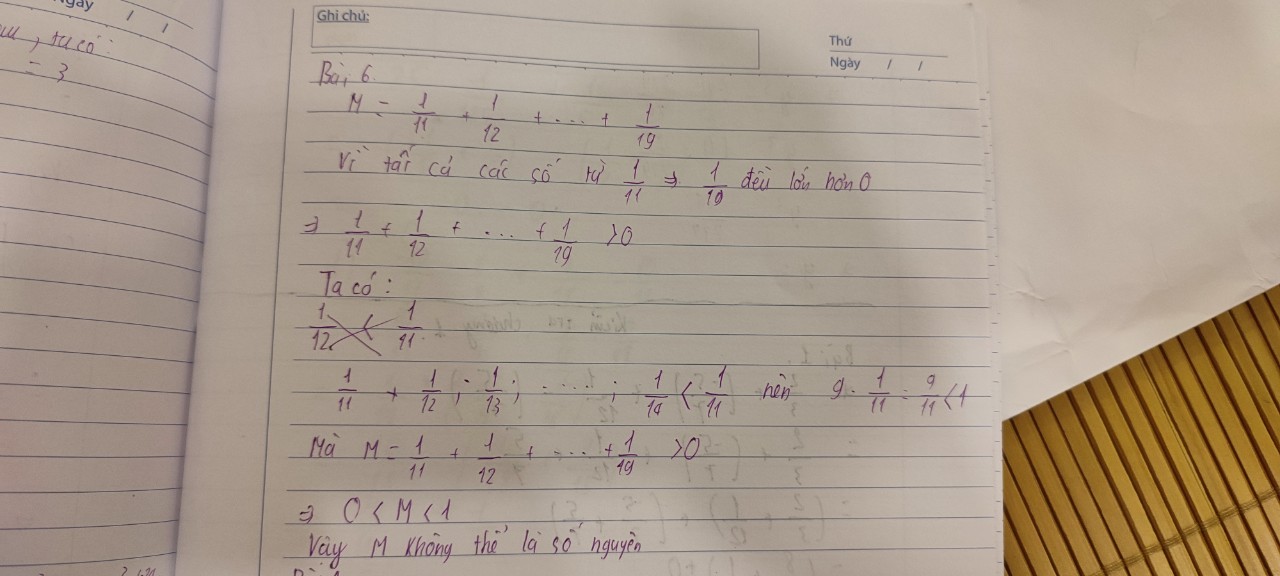 Ngày / /
, ta có:
= 3
Ghi chú:
Thứ
Ngày / /
Bài 6
M = 1/11 + 1/12 + ... + 1/19
Vì tất cả các số từ 1/11 => 1/19 đều lớn hơn 0
=> 1/11 + 1/12 + ... + 1/19 >0
Ta có:
1/12 < 1/11
1/11 + 1/12 ; 1/13 ; .... ; 1/19 < 1/11 nên 9 . 1/11 = 9/11 < 1
Mà M = 1/11 + 1/12 + ... + 1/19 >0
=> 0 < M < 1
Vậy M không thể là số nguyên